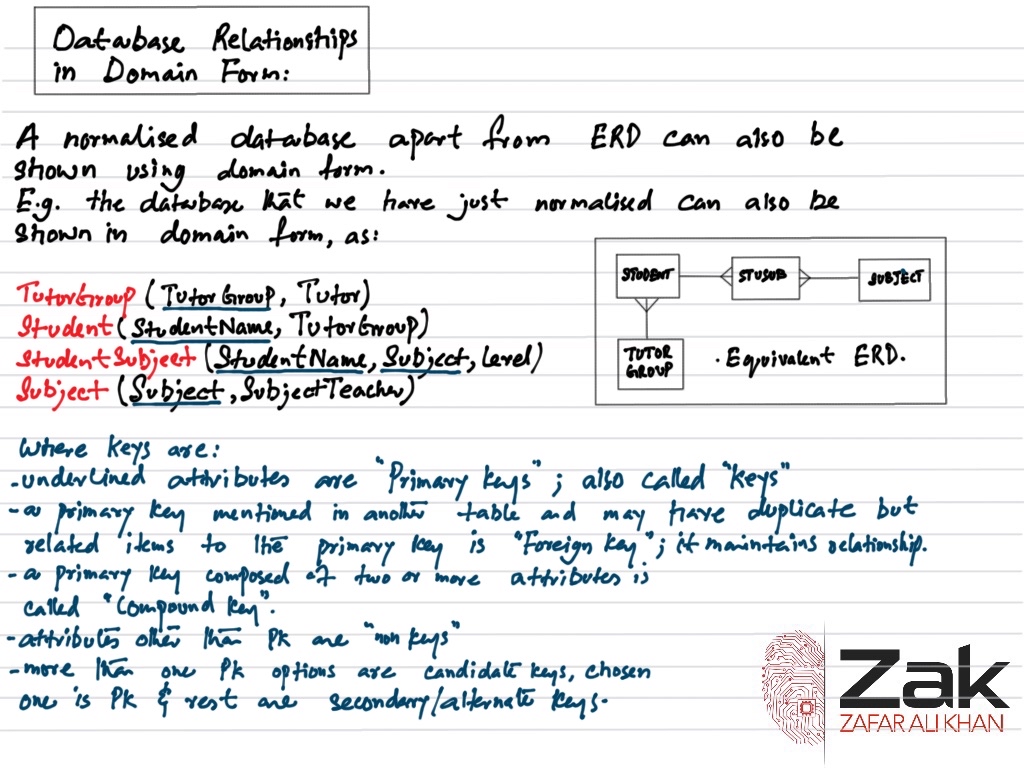 Database Relationships
in Domain Form:
A normalised database apart from ERD can also be
shown using domain form.
E.g. the database that we have just normalised can also be
shown in domain form, as:
TutorGroup (TutorGroup, Tutor)
Student (StudentName, TutorGroup)
StudentSubject (StudentName, Subject, Level)
Subject (Subject, SubjectTeacher)
STUDENT
STUSUB
SUBJECT
TUTOR
GROUP
. Equivalent ERD.
Where keys are:
- underlined attributes are "Primary keys"; also called "keys"
- a primary key mentioned in another table and may have duplicate but
related items to the primary key is "Foreign key"; it maintains relationship.
- a primary key composed of two or more attributes is
called "Compound key".
- attributes other than PK are "non keys"
- more than one PK options are candidate keys, chosen
one is PK & rest are secondary/alternate keys.
Zak
ZAFAR ALI KHAN